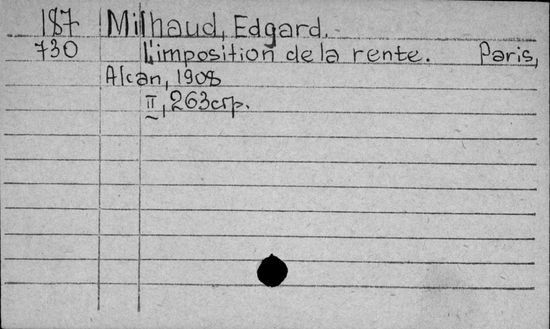 187 Milhaud, Edgard.
730 L'imposition de la rente. Paris,
Alcan, 1908
II, 263стр.